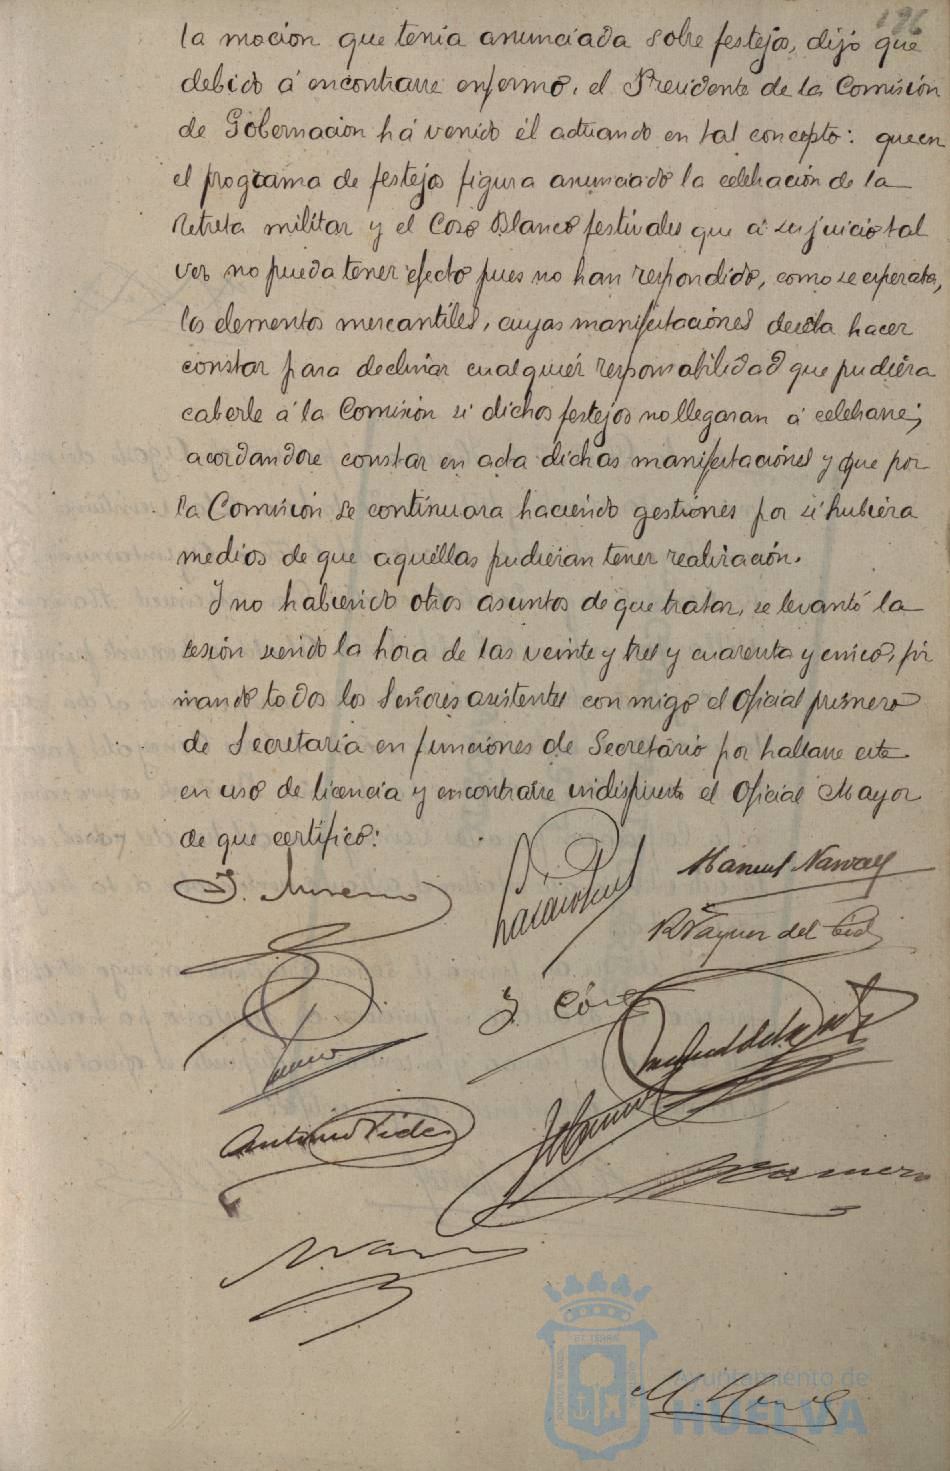 196
la mocion que tenia anunciada sobre festejos, dijo que
debido á encontrarse enfermo, el Presidente de la Comisión
de Gobernacion há venido él actuando en tal concepto: que en
el programa de festejos figura anunciado la celebración de la
retreta militar y el Coso Blanco festivales que á su juicio tal
vez no pueda tener efecto pues no han respondido, como se esperaba,
los elementos mercantiles, cuyas manifestaciónes desea hacer
constar para declinar cualquiér responsabilidad que pudiéra
caberle á la Comisión si dichos festejos no llegaran á celebrarse;
acordandose constar en acta dichas manifestaciónes y que por
la Comisión se continuara haciendo gestiónes por si hubiéra
medios de que aquéllas pudieran tener realización.
Y no habiendo otros asuntos de que tratar, se levantó la
sesión siendo la hora de las veinte y tres y cuarenta y cinco, fir
mando todos los Señores asistentes conmigo el Oficial primero
de Secretaria en funciónes de Secretário por hallarse este
en uso de licencia y encontrarse indispuesto el Oficial Mayor
de que certifico:
J. Moreno
Manuel Narvaez
R Vazquez del Cid
J. Có
Antonio Vides
M. 
Ayuntamiento de
HUELVA